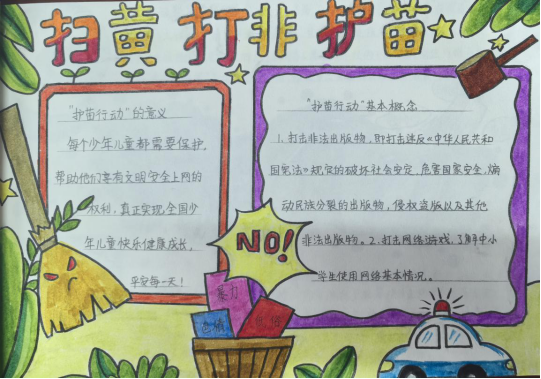 扫黄 打非 护苗
"护苗行动"的意义
每个少年儿童都需要保护,
帮助他们享有文明安全上网的
权利,真正实现全国少
年儿童快乐健康成长,
平安每一天!
"护苗行动"基本概念
1、打击非法出版物,即打击违反《中华人民共和
国宪法》规定的破坏社会安定,危害国家安全,煽
动民族分裂的出版物,侵权盗版以及其他
非法出版物。2、打击网络游戏,了解中小
学生使用网络基本情况。
NO!
暴力
色情